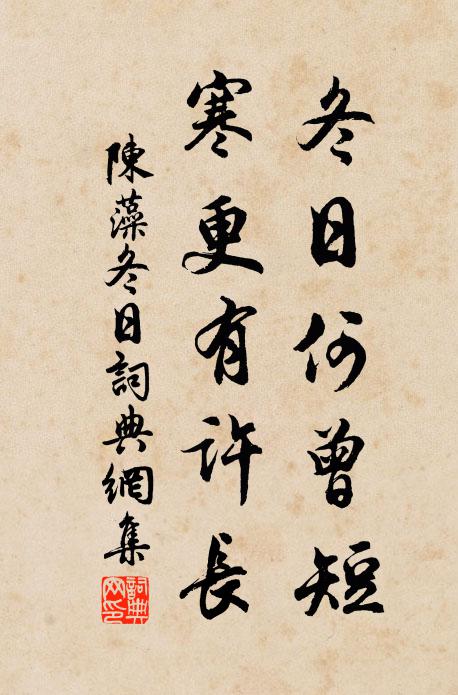 冬日何曾短
寒更有許長
陳藻冬日詞典網集
詞典網印